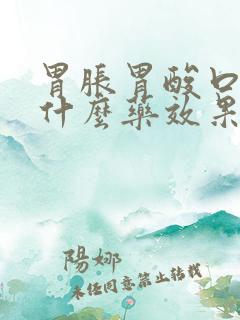 胃脹胃酸口
什麼藥效果
陽娜
未经同意禁止转载